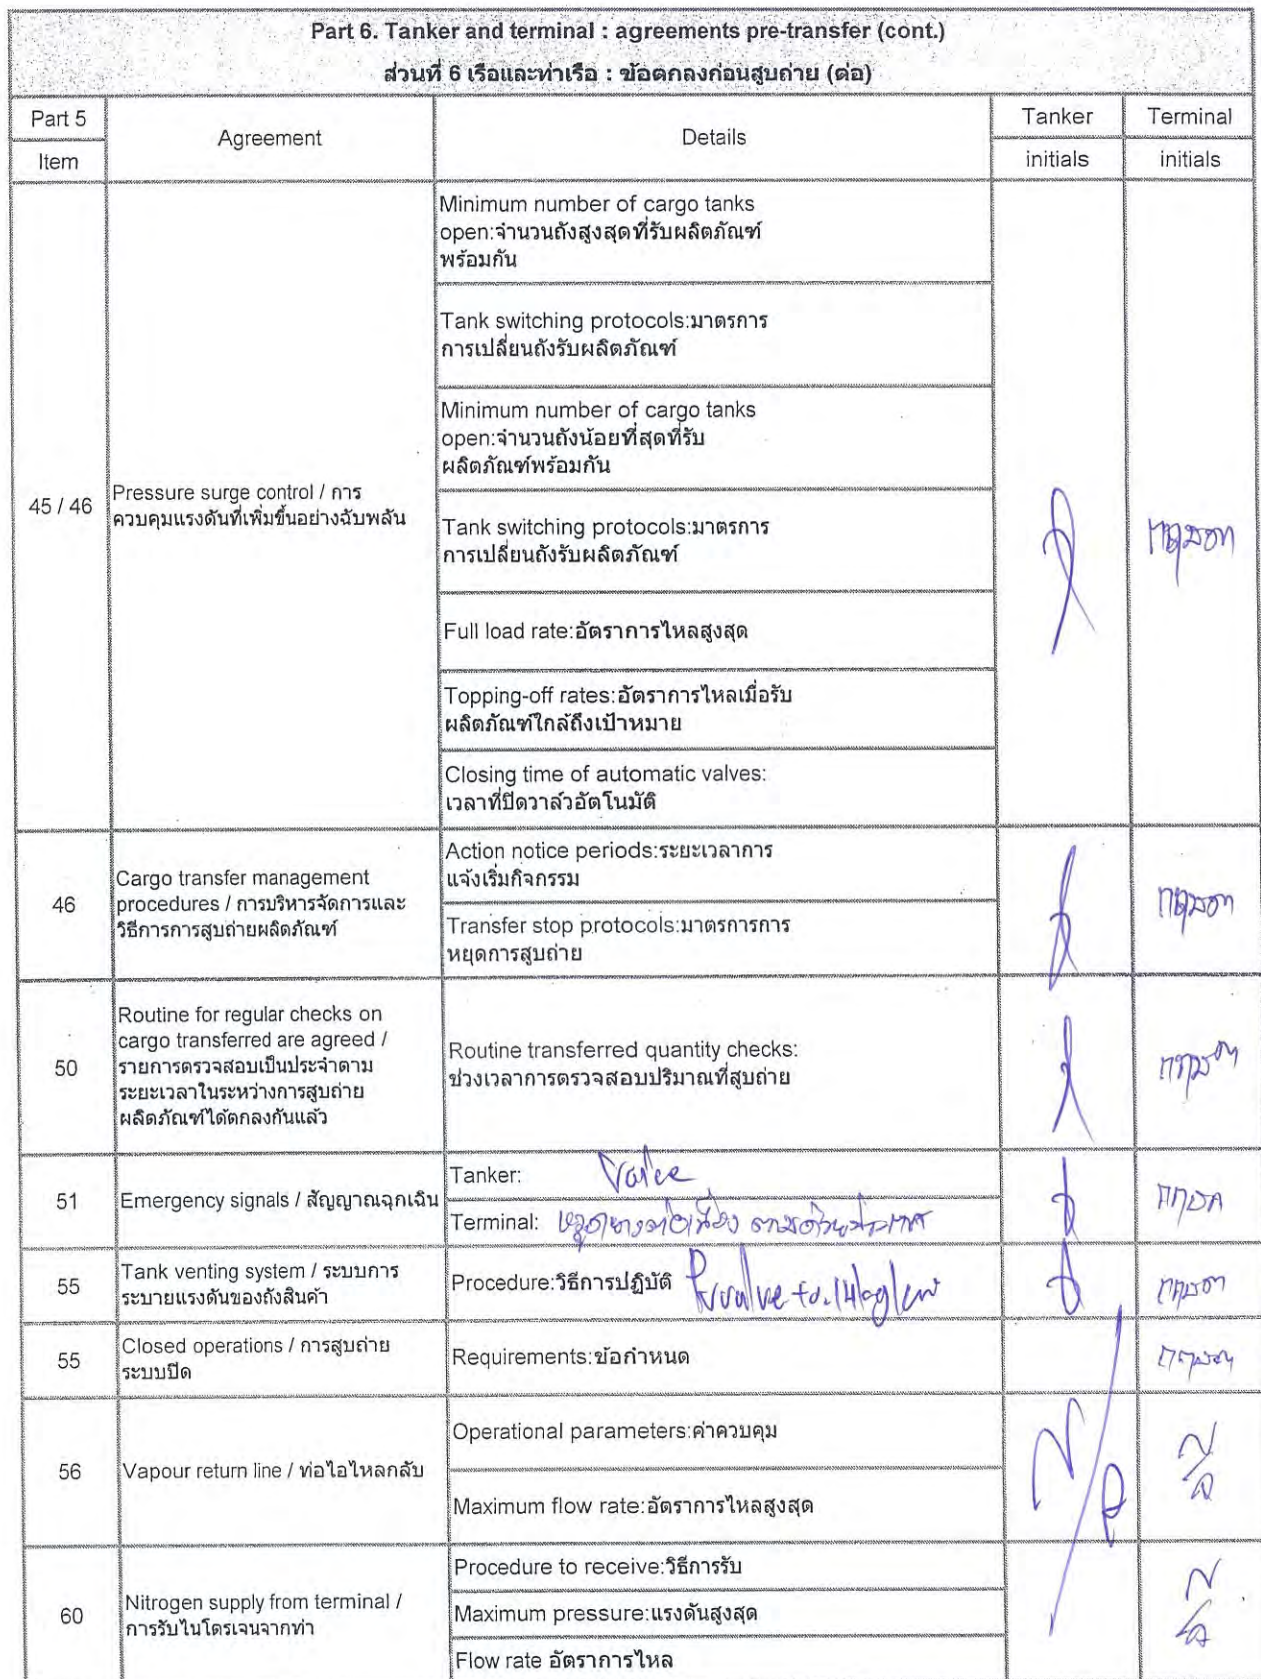 Part 6. Tanker and terminal : agreements pre-transfer (cont.)
ส่วนที่ 6 เรือและท่าเรือ : ข้อตกลงก่อนสูบถ่าย (ต่อ)
Part 5
Item
Agreement
Details
Tanker
initials
Terminal
initials
45 / 46
Pressure surge control / การ
ควบคุมแรงดันที่เพิ่มขึ้นอย่างฉับพลัน
Minimum number of cargo tanks
open:จำนวนถังสูงสุดที่รับผลิตภัณฑ์
พร้อมกัน
Tank switching protocols:มาตรการ
การเปลี่ยนถังรับผลิตภัณฑ์
Minimum number of cargo tanks
open:จำนวนถังน้อยที่สุดที่รับ
ผลิตภัณฑ์พร้อมกัน
Tank switching protocols:มาตรการ
การเปลี่ยนถังรับผลิตภัณฑ์
Full load rate:อัตราการไหลสูงสุด
Topping-off rates:อัตราการไหลเมื่อรับ
ผลิตภัณฑ์ใกล้ถึงเป้าหมาย
Closing time of automatic valves:
เวลาที่ปิดวาล์วอัตโนมัติ
46
Cargo transfer management
procedures / การบริหารจัดการและ
วิธีการการสูบถ่ายผลิตภัณฑ์
Action notice periods:ระยะเวลาการ
แจ้งเริ่มกิจกรรม
Transfer stop protocols:มาตรการการ
หยุดการสูบถ่าย
50
Routine for regular checks on
cargo transferred are agreed /
รายการตรวจสอบเป็นประจำตาม
ระยะเวลาในระหว่างการสูบถ่าย
ผลิตภัณฑ์ได้ตกลงกันแล้ว
Routine transferred quantity checks:
ช่วงเวลาการตรวจสอบปริมาณที่สูบถ่าย
51
Emergency signals / สัญญาณฉุกเฉิน
Tanker:
Terminal:
55
Tank venting system / ระบบการ
ระบายแรงดันของถังสินค้า
Procedure:วิธีการปฏิบัติ
55
Closed operations / การสูบถ่าย
ระบบปิด
Requirements:ข้อกำหนด
56
Vapour return line / ท่อไอไหลกลับ
Operational parameters:ค่าควบคุม
Maximum flow rate:อัตราการไหลสูงสุด
60
Nitrogen supply from terminal /
การรับไนโตรเจนจากท่า
Procedure to receive:วิธีการรับ
Maximum pressure:แรงดันสูงสุด
Flow rate อัตราการไหล